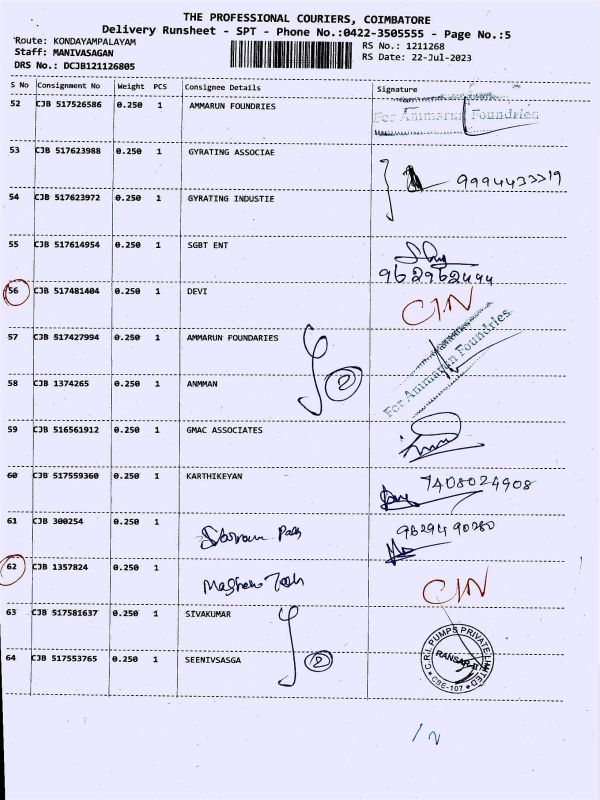 THE PROFESSIONAL COURIERS, COIMBATORE
Delivery Runsheet - SPT - Phone No.:0422-3505555 - Page No.:5
Route: KONDAYAMPALAYAM
RS No.: 1211268
Staff: MANIVASAGAN
RS Date: 22-Jul-2023
DRS No.: DCJB121126805
S No Consignment No Weight PCS Consignee Details Signature
52 CJB 517526586 0.250 1 AMMARUN FOUNDRIES
For Ammarun Foundries
53 CJB 517623988 0.250 1 GYRATING ASSOCIAE
54 CJB 517623972 0.250 1 GYRATING INDUSTIE
55 CJB 517614954 0.250 1 SGBT ENT
56 CJB 517481404 0.250 1 DEVI CIN
57 CJB 517427994 0.250 1 AMMARUN FOUNDARIES
For Ammarun Foundries
58 CJB 1374265 0.250 1 ANMMAN 2
59 CJB 516561912 0.250 1 GMAC ASSOCIATES
60 CJB 517559360 0.250 1 KARTHIKEYAN 7408024908
61 CJB 300254 0.250 1 9629490280
62 CJB 1357824 0.250 1 CIN
63 CJB 517581637 0.250 1 SIVAKUMAR
64 CJB 517553765 0.250 1 SEENIVSASGA 2
C.R.I. PUMPS PRIVATE LIMITED
CBE-107